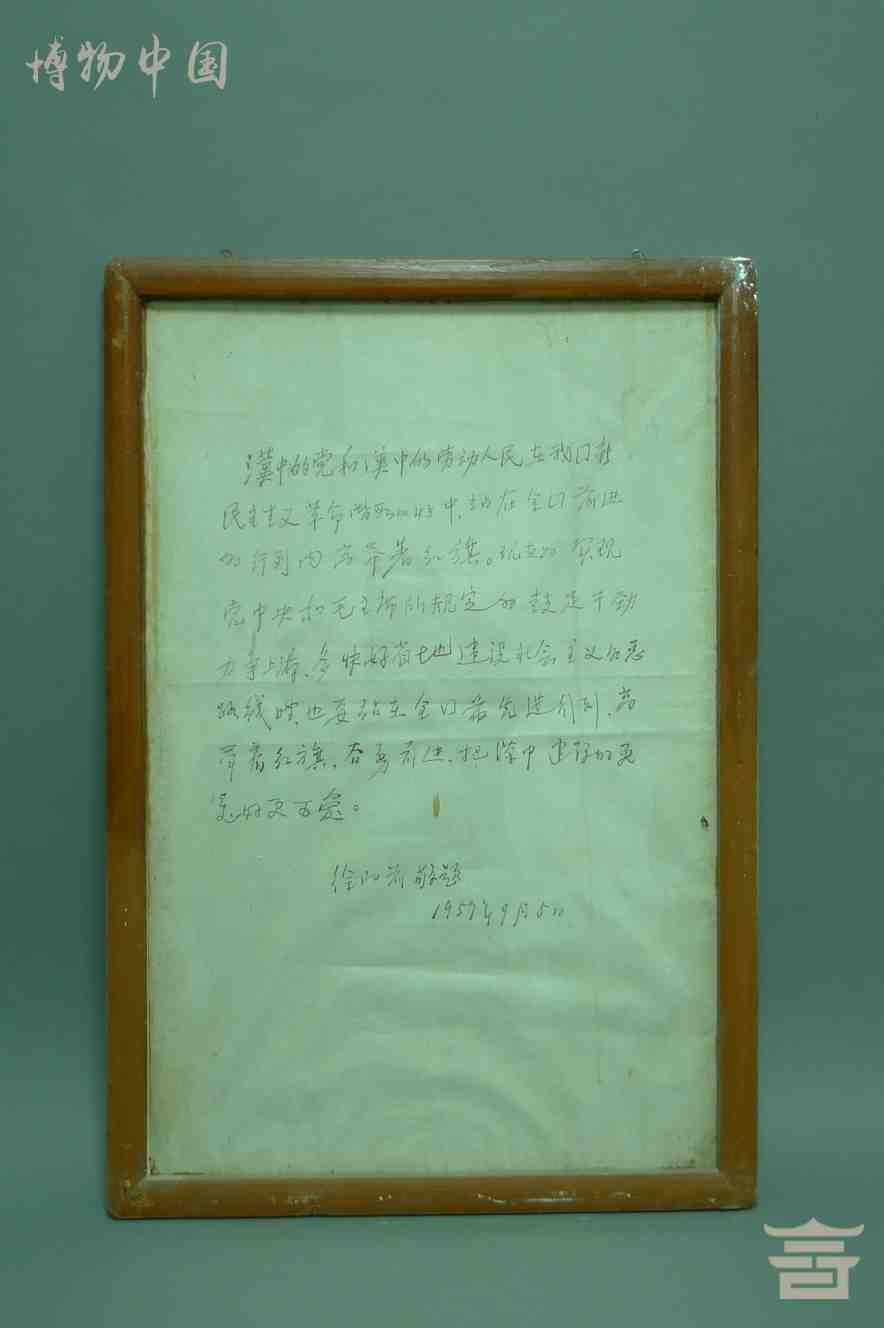 博物中国
漢中的党和漢中的劳动人民在我口新
民主主义革命阶段的中，站在全口前进
的行列内高举着红旗。现在为实现
党中央和毛主席所规定的鼓足干劲
力争上游、多快好省地建设社会主义的总
路线时，也要站在全口最先进行列，高
举着红旗，奋勇前进，把漢中建设的更
美好更可爱。
徐向前敬题
1959年9月5日